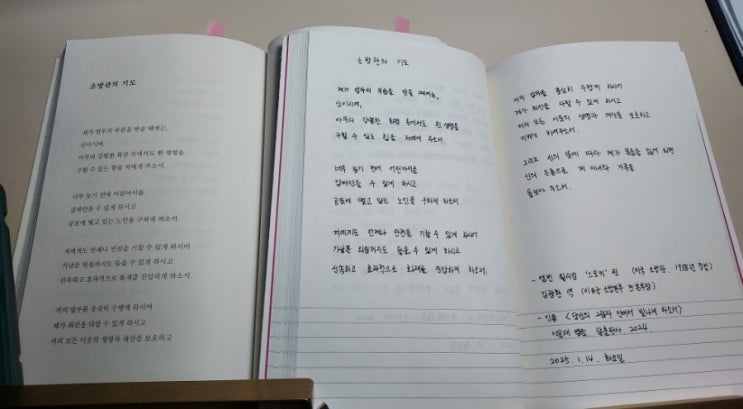 소방관의 기도
제가 업무의 부름을 받을 때에는,
신이시여,
아무리 강렬한 화염 속에서도 한 생명을
구할 수 있는 힘을 저에게 주소서.
너무 늦기 전에 어린아이를
감싸안을 수 있게 하시고
공포에 떨고 있는 노인을 구하게 하소서.
저에게도 언제나 안전을 기할 수 있게 하시어
가냘픈 외침까지도 들을 수 있게 하시고
신속하고 효과적으로 화재를 진압하게 하소서.
저의 업무를 충실히 수행케 하시어
제가 최선을 다할 수 있게 하시고
저의 모든 이웃의 생명과 재산을 보호하고
소방관의 기도
제가 업무의 부름을 받을 때에는,
신이시여,
아무리 강렬한 화염 속에서도 한 생명을
구할 수 있는 힘을 저에게 주소서.
너무 늦기 전에 어린아이를
감싸안을 수 있게 하시고
공포에 떨고 있는 노인을 구하게 하소서.
저에게도 언제나 안전을 기할 수 있게 하시어
가냘픈 외침까지도 들을 수 있게 하시고
신속하고 효과적으로 화재를 진압하게 하소서.
저의 업무를 충실히 수행케 하시어
제가 최선을 다할 수 있게 하시고
저의 모든 이웃의 생명과 재산을 보호하고
지키게 하여주소서.
그리고 신의 뜻에 따라 제가 목숨을 잃게 되면
신의 은총으로 제 아내와 가족을
돌보아 주소서.
- 앨빈 윌리엄 '스모키' 린 (미국 소방관. 1958년 집필)
김철환 역 (미8군 소방본부
- 인용 <당신의 그림자 안에서 빛나게 하소서>
이문재 엮음 달출판사. 2024
2025. 1. 14. 화요일